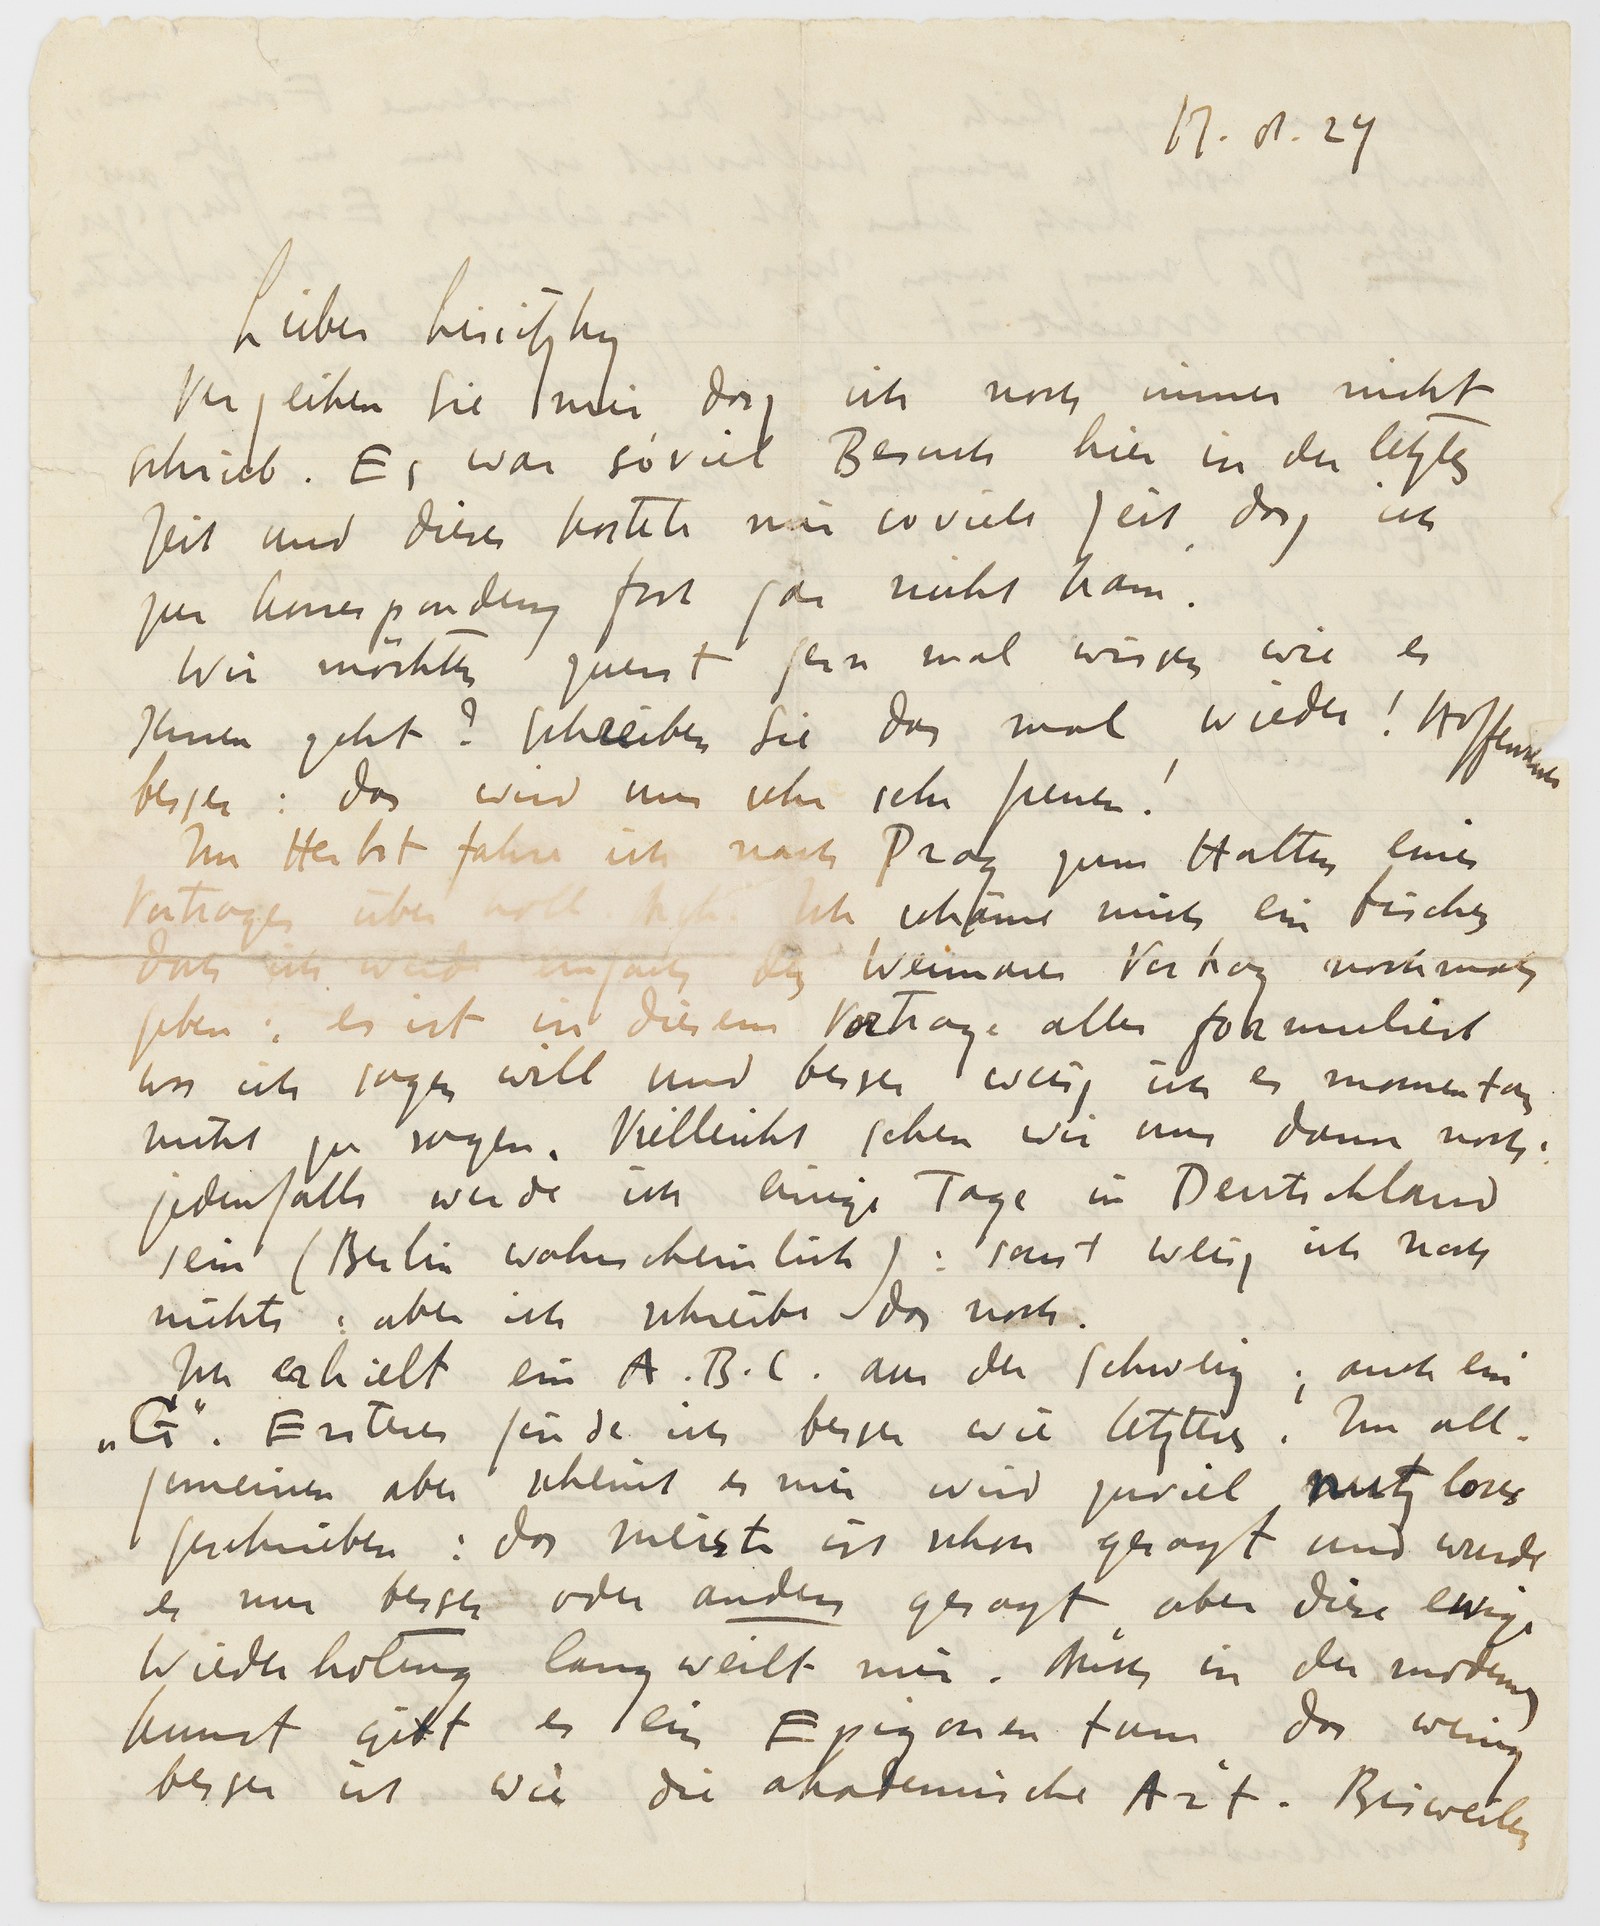 17. 01. 24
Lieber Lissitzky
Verzeihen Sie mir, dasz ich noch immer nicht
schrieb. Es war soviel Besuch hier in der letzten
Zeit und dieses kostete mir soviele Zeit, dasz ich
zur Korrespondenz fast gar nicht kam.
Wir möchten zuerst gern mal wissen wie es
Ihnen geht? Schreiben Sie das mal wieder! Hoffentlich
besser: das wird uns sehr sehr freuen!
Im Herbst fahre ich nach Prag zum Halten eines
Vortrages über Ich schäme mich ein bischen
doch ich werde einfach den Weimarer Vortrag nochmals
geben: es ist in diesem Vortrage alles formuliert
was ich sagen will und besser weisz ich es momentan
nicht zu sagen. Vielleicht sehen wir uns dann noch:
jedenfalls werde ich einige Tage in Deutschland
sein (Berlin wahrscheinlich): sonst weisz ich noch
nichts: aber ich schreibe das noch.
Ich erhielt ein A.B.C. aus der Schweiz; auch ein
„G“. Ersteres finde ich besser wie letzteres. Im all-
gemeinen aber scheint es mir wird zuviel nutzloses
geschrieben: das meiste ist schon gesagt und wurde
es nur besser oder anders gesagt, aber diese ewige
Wiederholung langweilt mir. Auch in der modernen
Kunst gibt es ein Epigonentum, das wenig
besser ist wie die akademische Art. Bisweilen